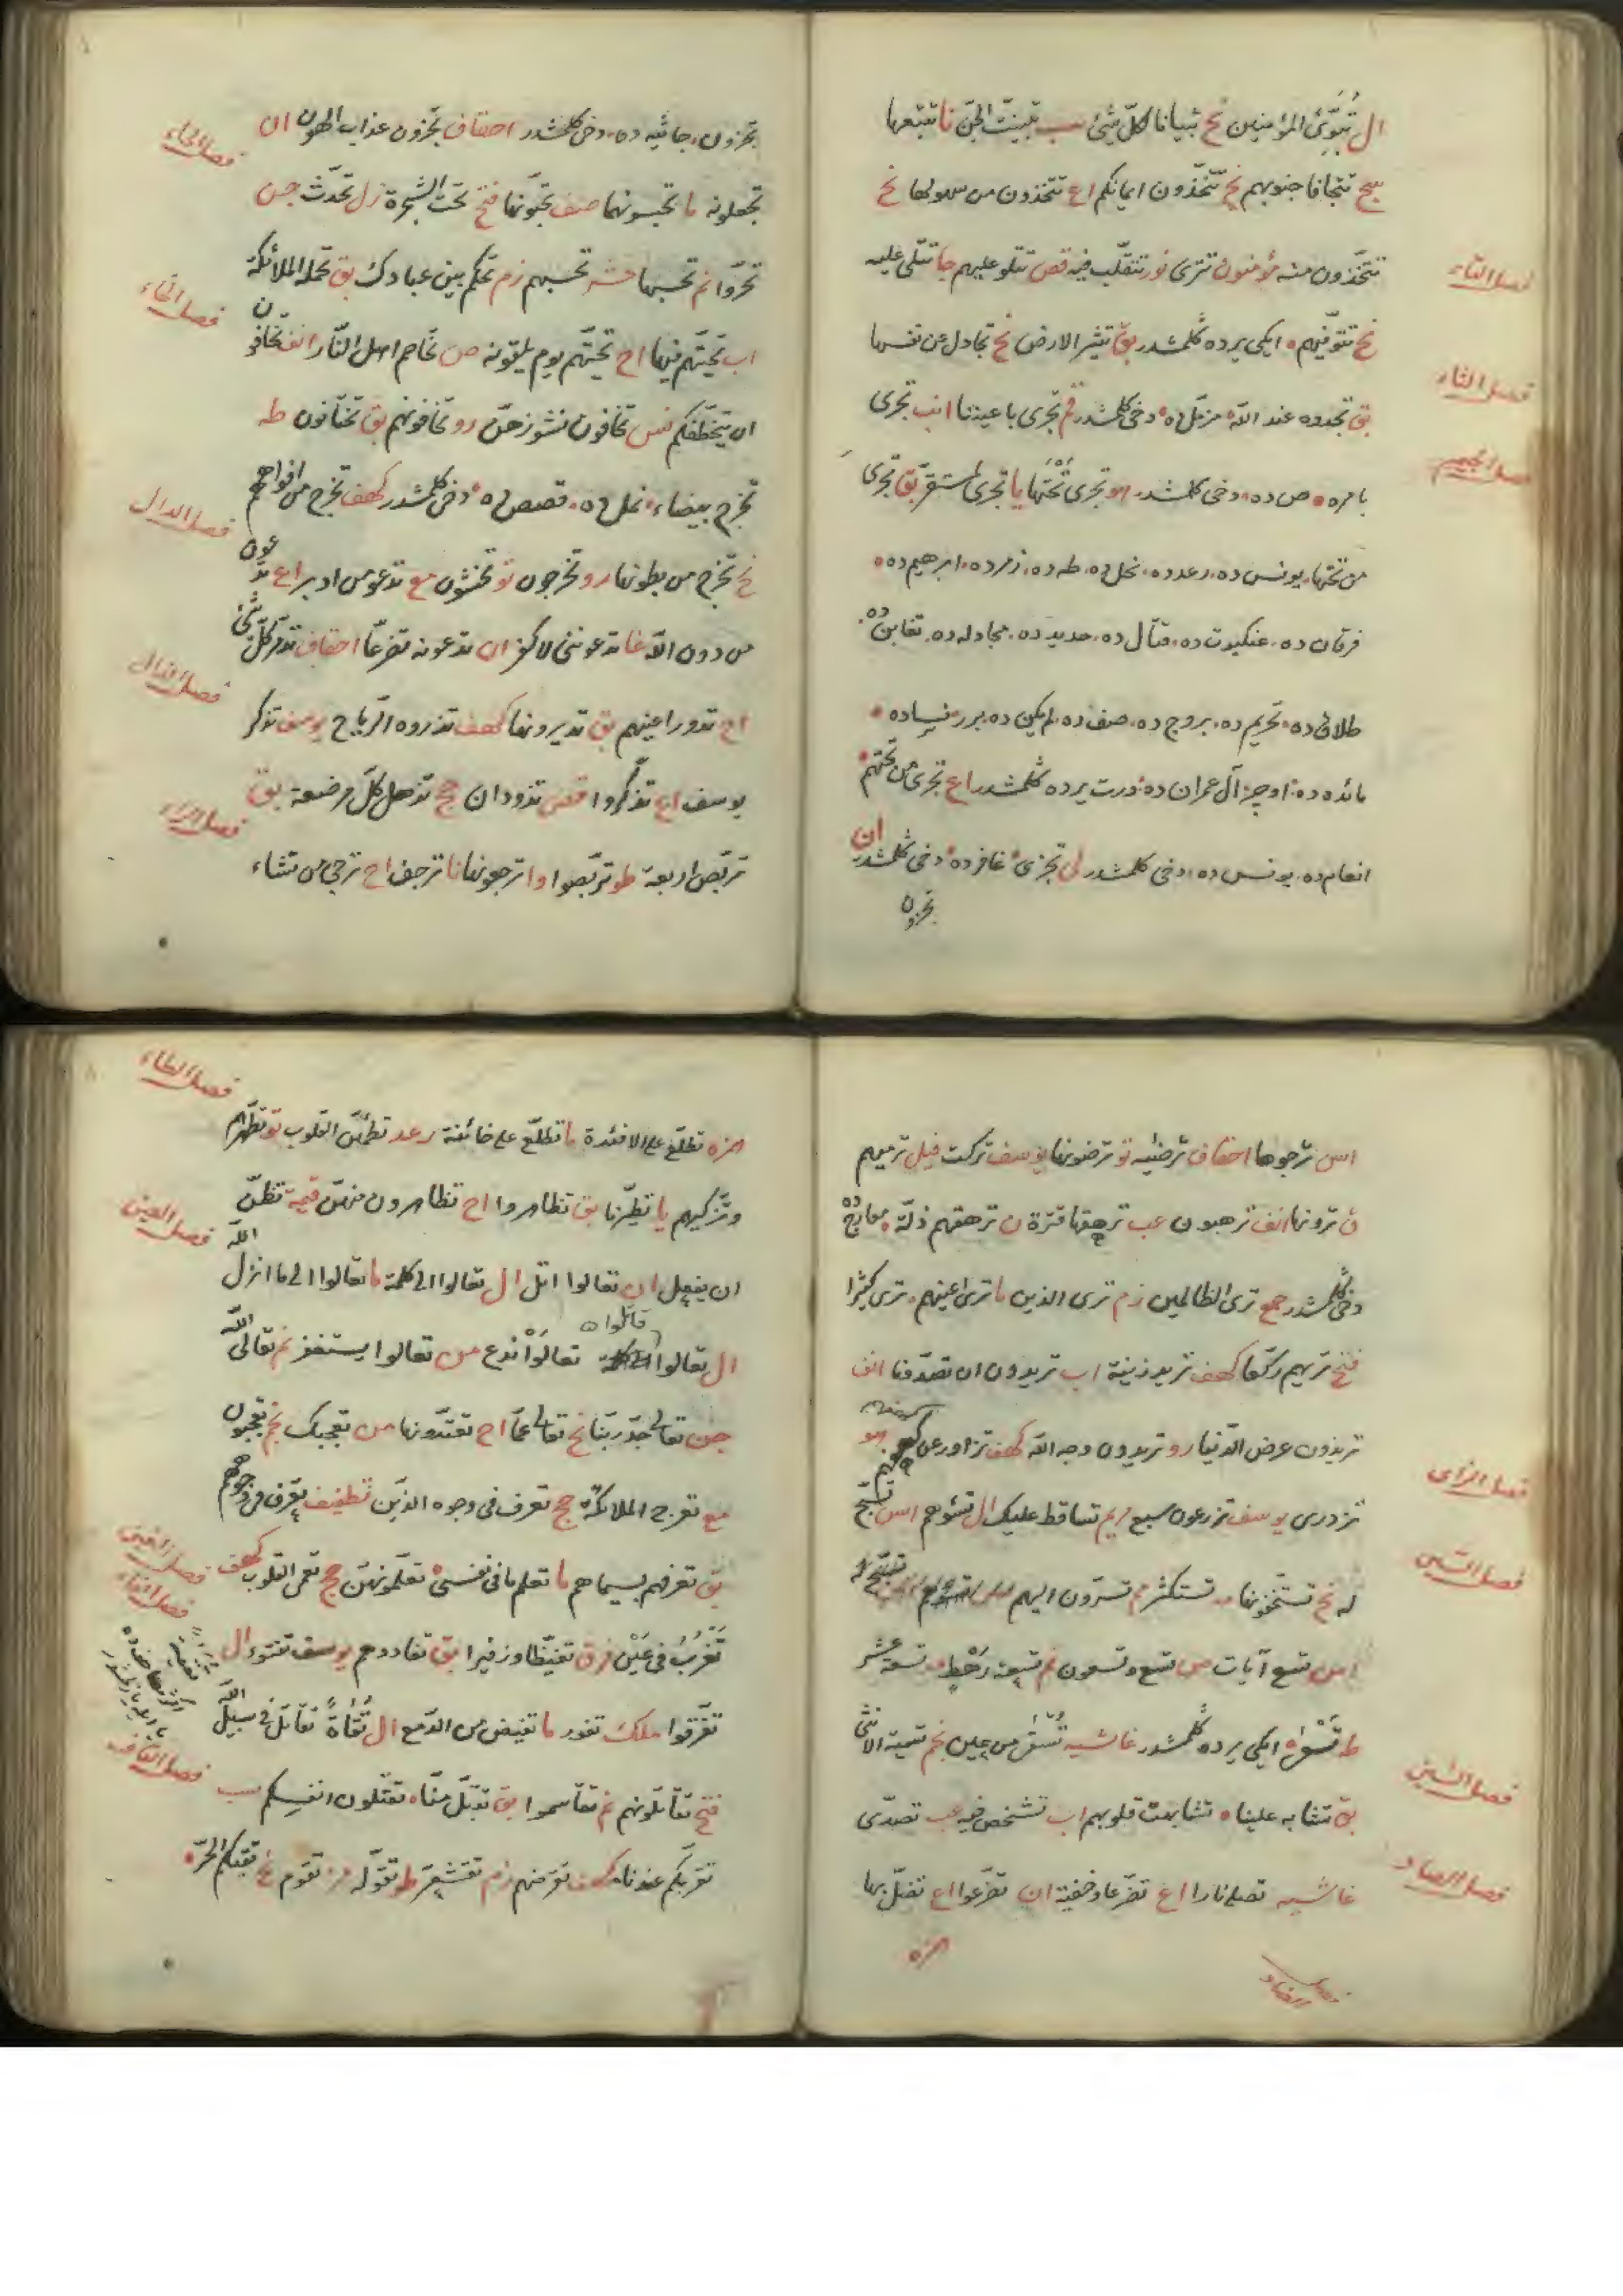 ال تُبَوِّئُ المؤمنين نح تبيانا لكلّ شئ سب تبيّنت الجنّ نا تتبعها
سج تتجافا جنوبهم نح تتّخذون ايمانكم اع تتّخذون من سهولها نح
تتّخذون منه مؤمنون تترى نور تتقلّب فيه قص تتلو عليهم جا تتلى عليه
فصل الثاء
نح تتوفّيهم ايكى يرده كلمشدر بق تثير الارض نح تجادل عن نفسها
فصل الجيم
بق تجدوه عند اللّه مزمّل ده دخى كلمشدر قم تجرى باعيننا انب تجرى
بامره ص ده دخى كلمشدر هو تجرى تحتها يا تجرى لمستقرّ بق تجرى
من تحتها يونس ده رعد ده نحل ده طه ده زمر ده ابرهيم ده
فرقان ده عنكبوت ده قتال ده حديد ده مجادله ده تغابن ده
طلاق ده تحريم ده بروج ده صف ده لم يكن ده نسا ده
مائده ده اوچ آل عمران ده درت يرده كلمشدر اع تجرى من تحتهم
انعام ده يونس ده دخى كلمشدر لى تجزى غافر ده دخى كلمشدر ان
تجزون
فصل الحاء
تجزون جاثيه ده دخى كلمشدر احقاف تجزون عذاب الهون ان
تجعلونه ما تحبسونهما صف تحبّونها فتح تحت الشجرة زل تحدّث جن
تحرّوا نم تحسبها حشر تحسبهم زم تحكم بين عبادك بق تحمله الملائكة
فصل الخاء
اب تحيّتهم فيها اح تحيّتهم يوم يلقونه ص تخاصم اهل النّار انف تخافون
ان يتخطّفكم نس تخافون نشوزهنّ رو تخافونهم بق تختانون طه
تخرج بيضاء نمل ده قصص ده دخى كلمشدر كهف تخرج من افواههم
فصل الدال
نح تخرج من بطونها رو تخرجون تو تخشون مع تدعو من ادبر اع تدعون
من دون اللّه غا تدعوننى لاكفر ان تدعونه تضرّعا احقاف تدمّر كلّ شئ
فصل الذال
اح تدور اعينهم بق تديرونها كهف تذروه الرّياح يوسف تذكر
يوسف اع تذكّروا قص تذودان حج تذهل كلّ مرضعة بق
فصل الراء
تربّص اربعة طو تربّصوا وا ترجعونها نا ترجف اح ترجى من تشاء
اسر ترجوها احقاف ترضيه تو ترضونها يوسف تركت فيل ترميهم
ق ترونها انف ترهبون عب ترهقها قترة ن ترهقهم ذلّة معارج ده
دخى كلمشدر حمع ترى الظالمين زم ترى الذين ما ترى اعينهم ترى كثيرا
فتح تريهم ركّعا كهف تريد زينة اب تريدون ان تصدّونا انف
تريدون عرض الدّنيا رو تريدون وجه اللّه كهف تزاور عن كهفهم هو
فصل الزاى
تزدرى يوسف تزرعون سبع مريم تساقط عليك ال تسؤهم اس تسبّح
فصل السين
له نح تستخفّونها مد تستكثر مم تسرّون اليهم
اس تسع آيات ص تسع وتسعون نم تسعة رهط مد تسعة عشر
ط تسعى ايكى يرده كلمشدر غاشيه تسقى من عين نجم تسمية الانثى
فصل الشين
بق تشابه علينا تشابهت قلوبهم اب تشخص فيه عب تصدّى
فصل الصاد
غاشيه تصلى نارا اع تضرّعا وخفية ان تضرّعوا اع تضلّ بها
فصل الضاد
همزه
فصل الطاء
همزه تطّلع على الافئدة ما تطّلع على خائنة رعد تطمئنّ القلوب تو تطهّرهم
وتزكيهم يا تطيّرنا بق تظاهروا اح تظاهرون منهنّ قيمة تظنّ
فصل العين
ان يفعل ان تعالوا اتل ال تعالوا الى كلمة ما تعالوا الى ما انزل اللّه
ال تعالوا قاتلوا تعالوا ندع من تعالوا يستغفر نم تعالى اللّه
جن تعالى جدّ ربّنا نح تعالى عمّا اح تعتدّونها من تعجبك نجم تعجبون
مع تعرج الملائكة حج تعرف فى وجوه الذين تطفيف تعرف فى وجوههم
بق تعرفهم بسيماهم ما تعلم ما فى نفسى تعلّمونهنّ حج تعمى القلوب كهف
فصل الغين
تغرب فى عين فرق تغيّظا وزفيرا بق تفادوهم يوسف تفتؤ ال
فصل الفاء
تفرّقوا ملك تفور ما تفيض من الدّمع ال تقاة تقاتل فى سبيل اللّه
فصل القاف
فتح تقاتلونهم نم تقاسموا بق تقبّل منّا تقتلون انفسكم سب
تقرّبكم عندنا كهف تقرضهم زم تقشعرّ ط تقوّله مز تقوم نح تقيكم الحرّ